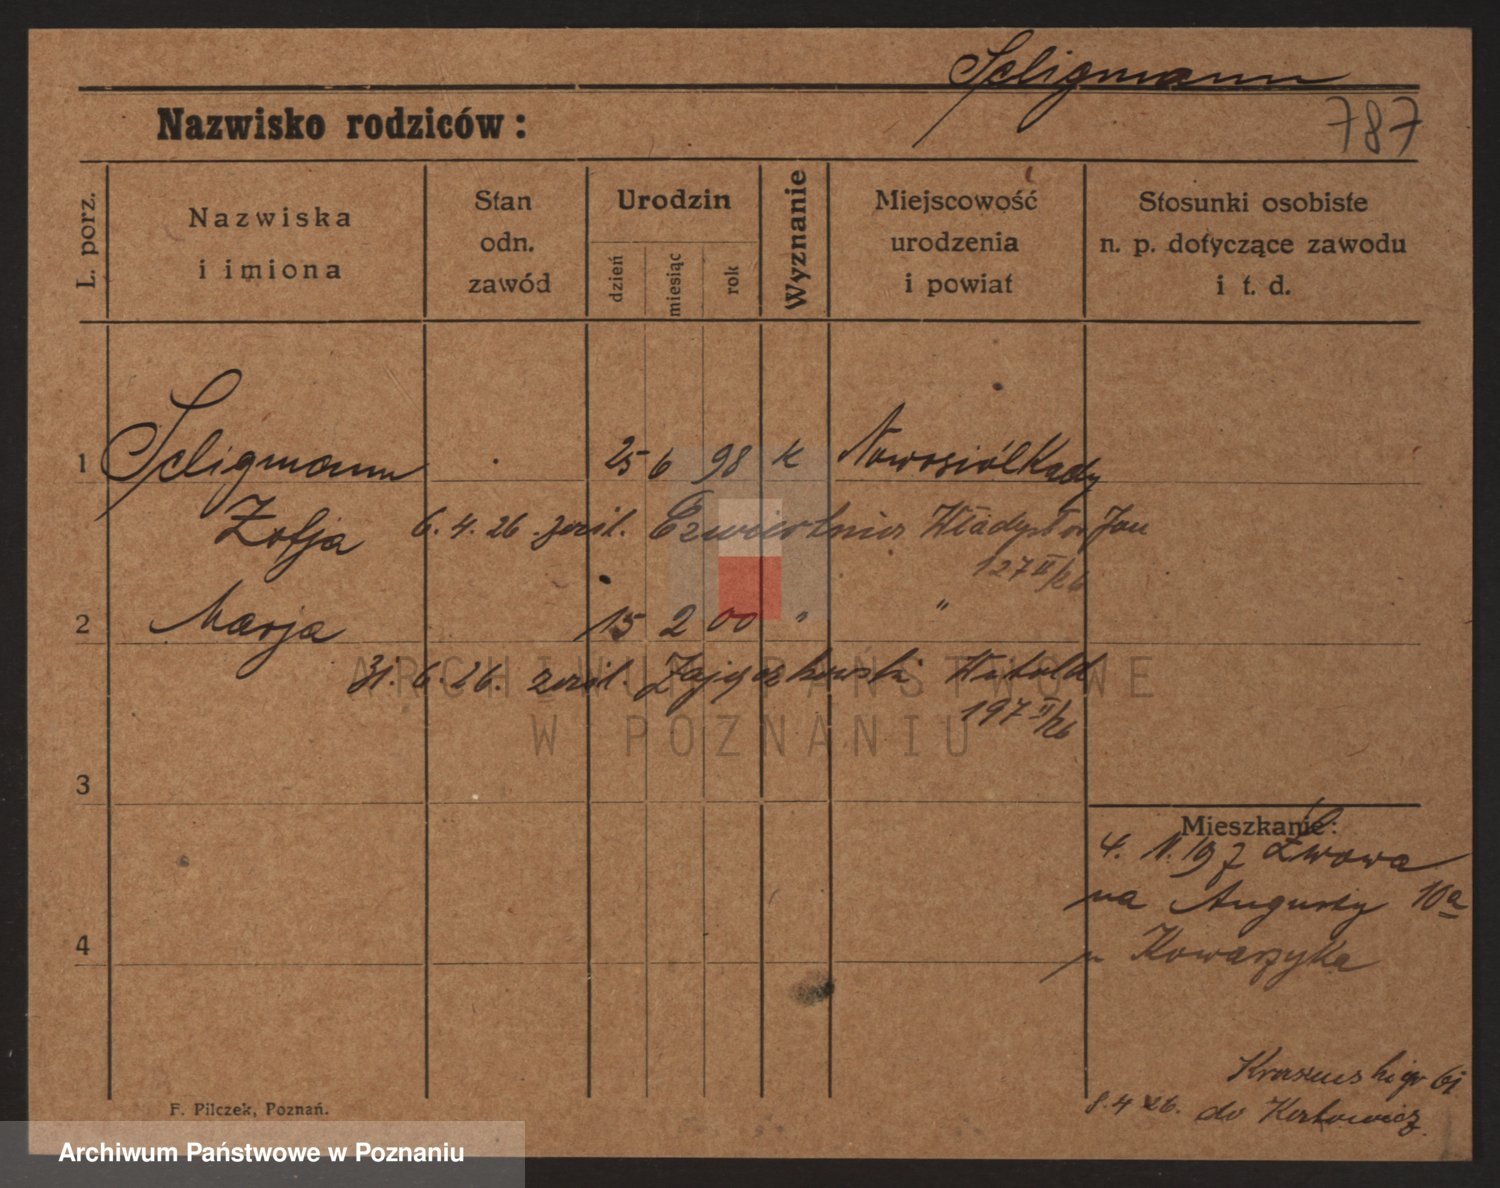 Seligmann
787
Nazwisko rodziców:
L. porz.
Nazwiska
i imiona
Stan
odn.
zawód
Urodzin
dzień
miesiąc
rok
Wyznanie
Miejscowość
urodzenia
i powiat
Stosunki osobiste
n. p. dotyczące zawodu
i t. d.
1 Seligmann 25 6 98 k Nowosiółkady
Zofja 6. 4. 26. Władysław Jan
127 II/26
2 Marja 15 2 00 " "
31. 6. 26. Zajączkowski Witold
197 II/26
3
Mieszkanie:
4. 11. 19 z Lwowa
na Augusty 10a
4
u Kowarzyka
Kraszewskiego 6
8. 4 26. do Katowicz.
F. Pilczek, Poznań.
ARCHIWUM PAŃSTWOWE
W POZNANIU
Archiwum Państwowe w Poznaniu